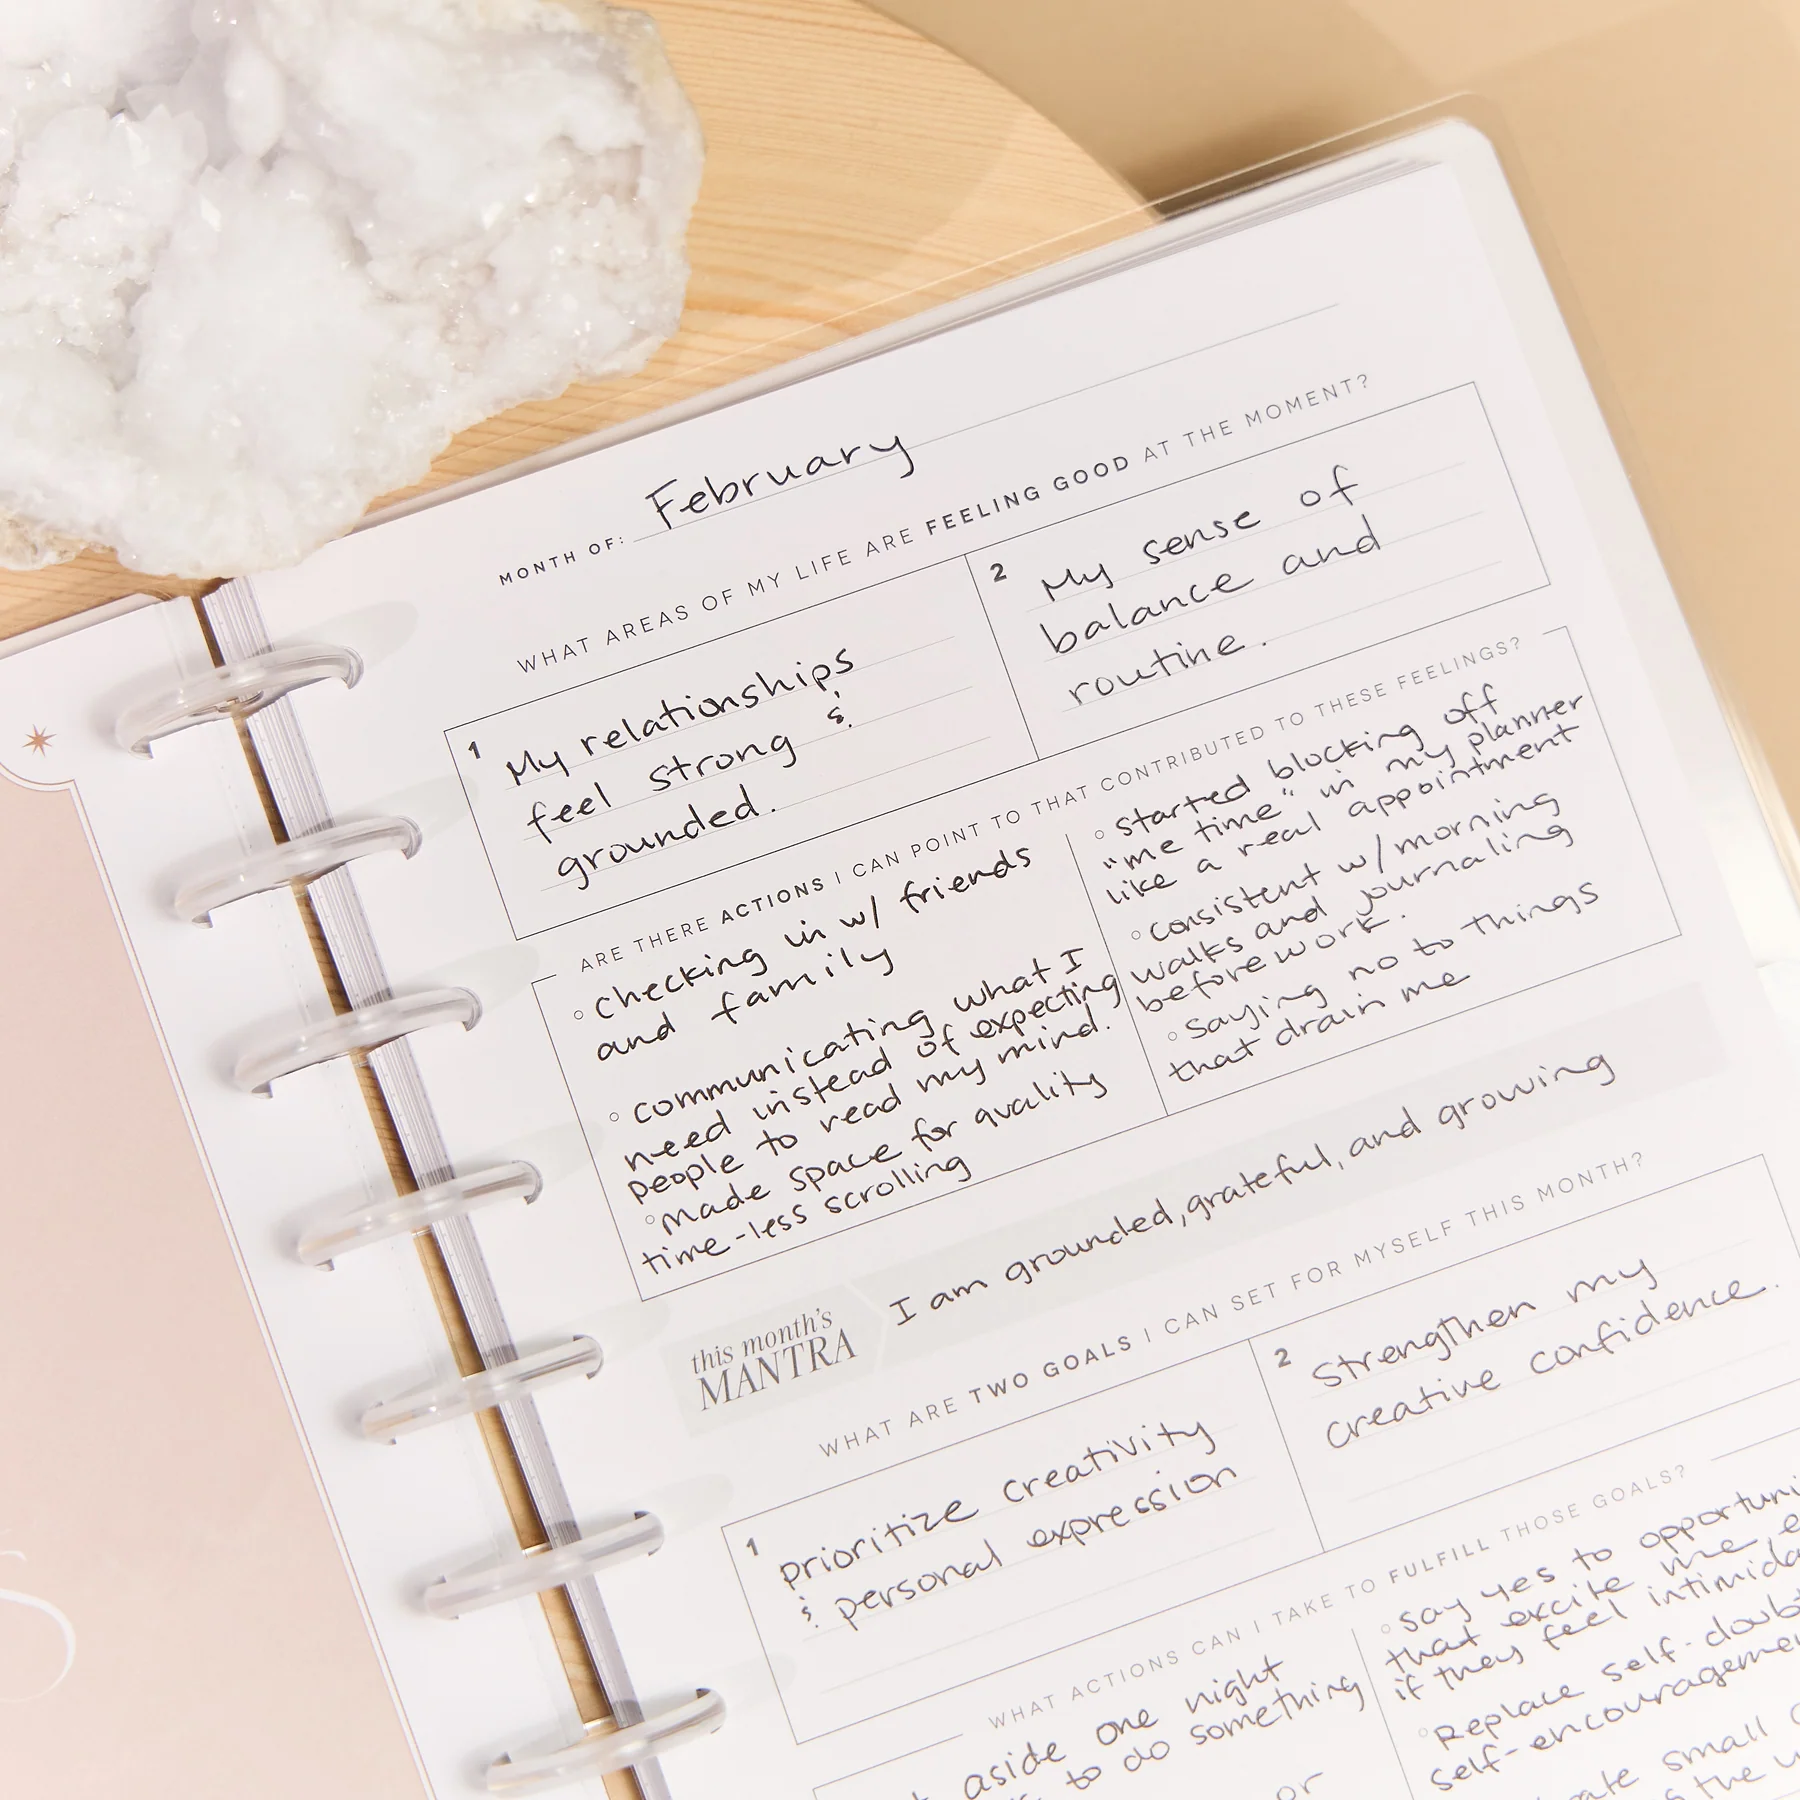 MONTH OF: February
WHAT AREAS OF MY LIFE ARE FEELING GOOD AT THE MOMENT?
1 My relationships
feel strong &
grounded.
2 My sense of
balance and
routine.
ARE THERE ACTIONS I CAN POINT TO THAT CONTRIBUTED TO THESE FEELINGS?
◦ checking in w/ friends
and family
◦ communicating what I
need instead of expecting
people to read my mind.
◦ made space for quality
time-less scrolling
◦ started blocking off
"me time" in my planner
like a real appointment
◦ consistent w/ morning
walks and journaling
before work.
◦ saying no to things
that drain me
this month's
MANTRA
I am grounded, grateful, and growing
WHAT ARE TWO GOALS I CAN SET FOR MYSELF THIS MONTH?
1 prioritize creativity
& personal expression
2 Strengthen my
creative confidence.
WHAT ACTIONS CAN I TAKE TO FULFILL THOSE GOALS?
aside one night
to do something
or
◦ say yes to
that excite me
if they feel
◦ Replace self-doubt
small
the